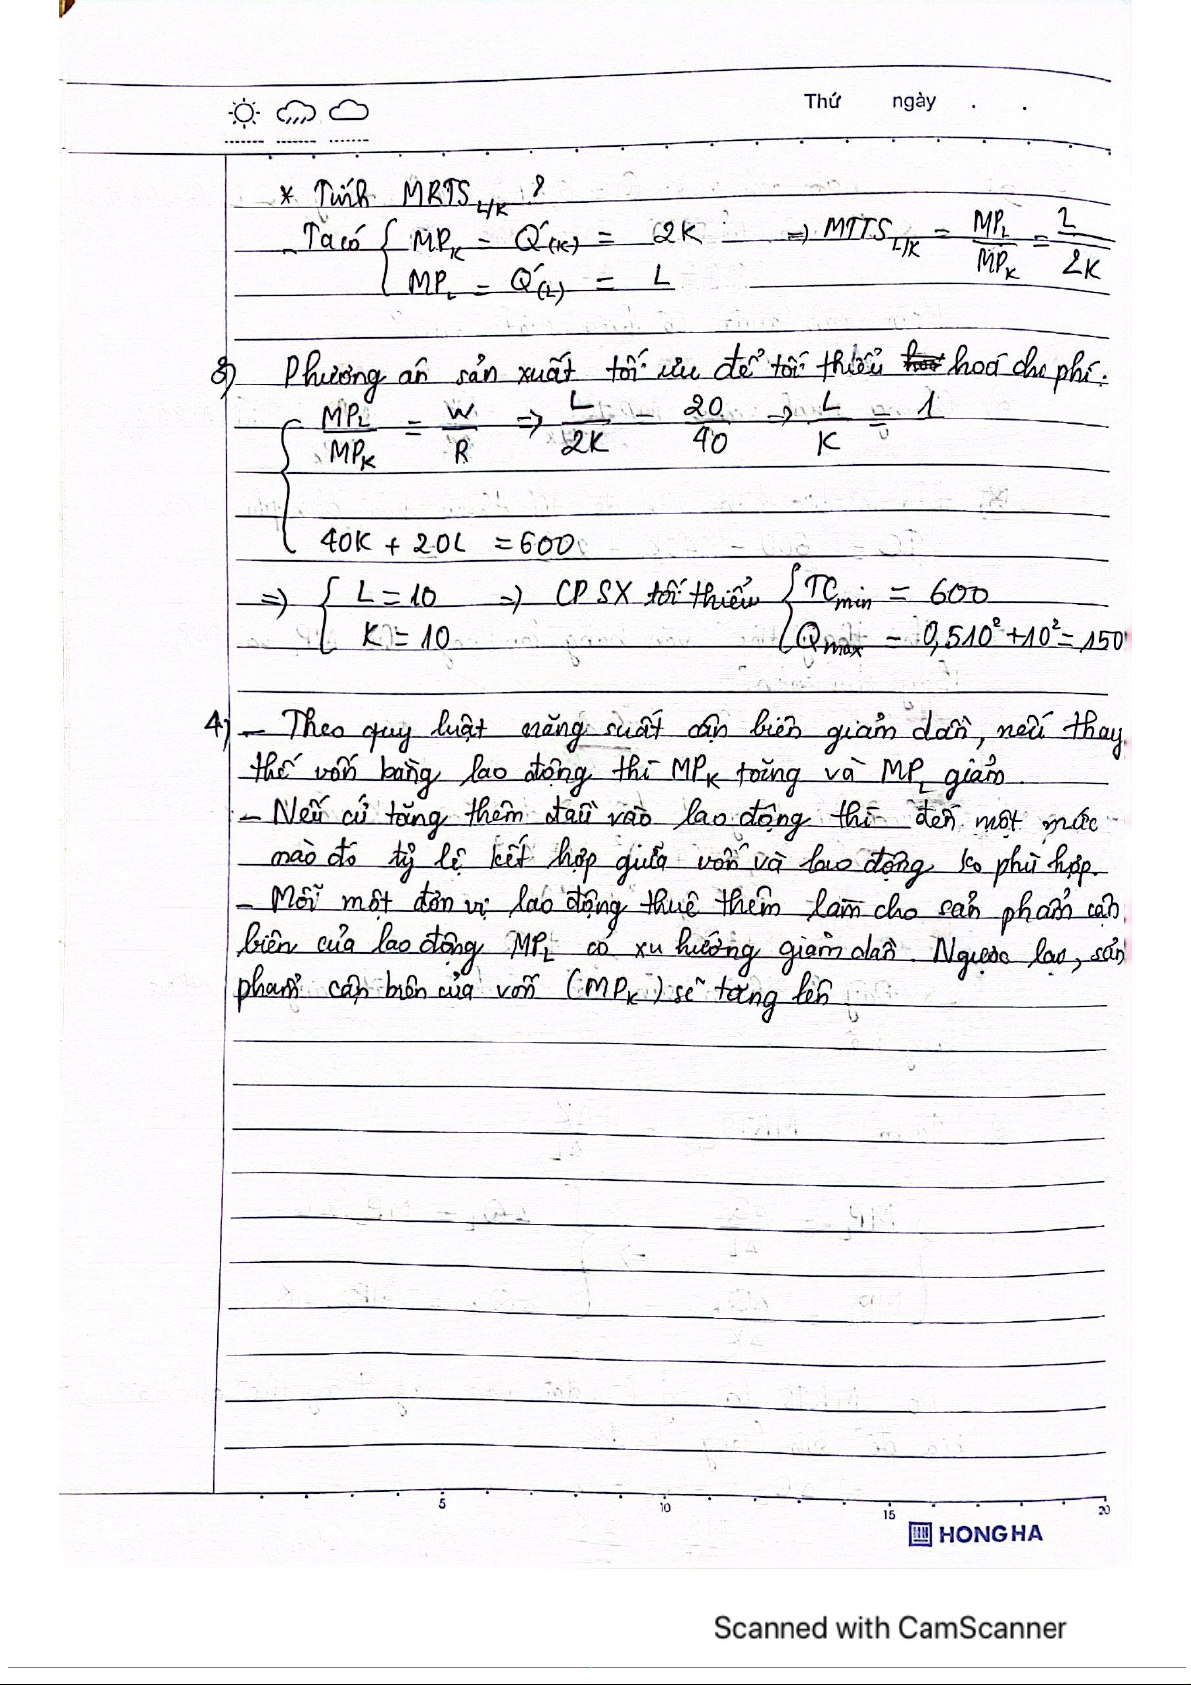 Thứ ngày . .
* Tính MRTS L/K ?
- Ta có { MP_K = Q'(K) = 2K => MTTS L/K = MP_L / MP_K = L / 2K
MP_L = Q'(L) = L
3) Phương án sản xuất tối ưu để tối thiểu hoá chi phí.
{ MP_L / MP_K = W / R => L / 2K = 20 / 40 => L / K = 1
40K + 20L = 600
=> { L = 10 => CPSX tối thiểu { TC min = 600
K = 10 Q max = 0,5.10² + 10² = 150
4) - Theo quy luật năng suất cận biên giảm dần, nếu thay
thế vốn bằng lao động thì MP_K tăng và MP_L giảm
- Nếu cứ tăng thêm đầu vào lao động thì đến một mức
nào đó tỷ lệ kết hợp giữa vốn và lao động ko phù hợp.
- Mỗi một đơn vị lao động thuê thêm làm cho sản phẩm cận
biên của lao động MP_L có xu hướng giảm dần. Ngược lại, sản
phẩm cận biên của vốn (MP_K) sẽ tăng lên
5 10 15 20
HONG HA
Scanned with CamScanner